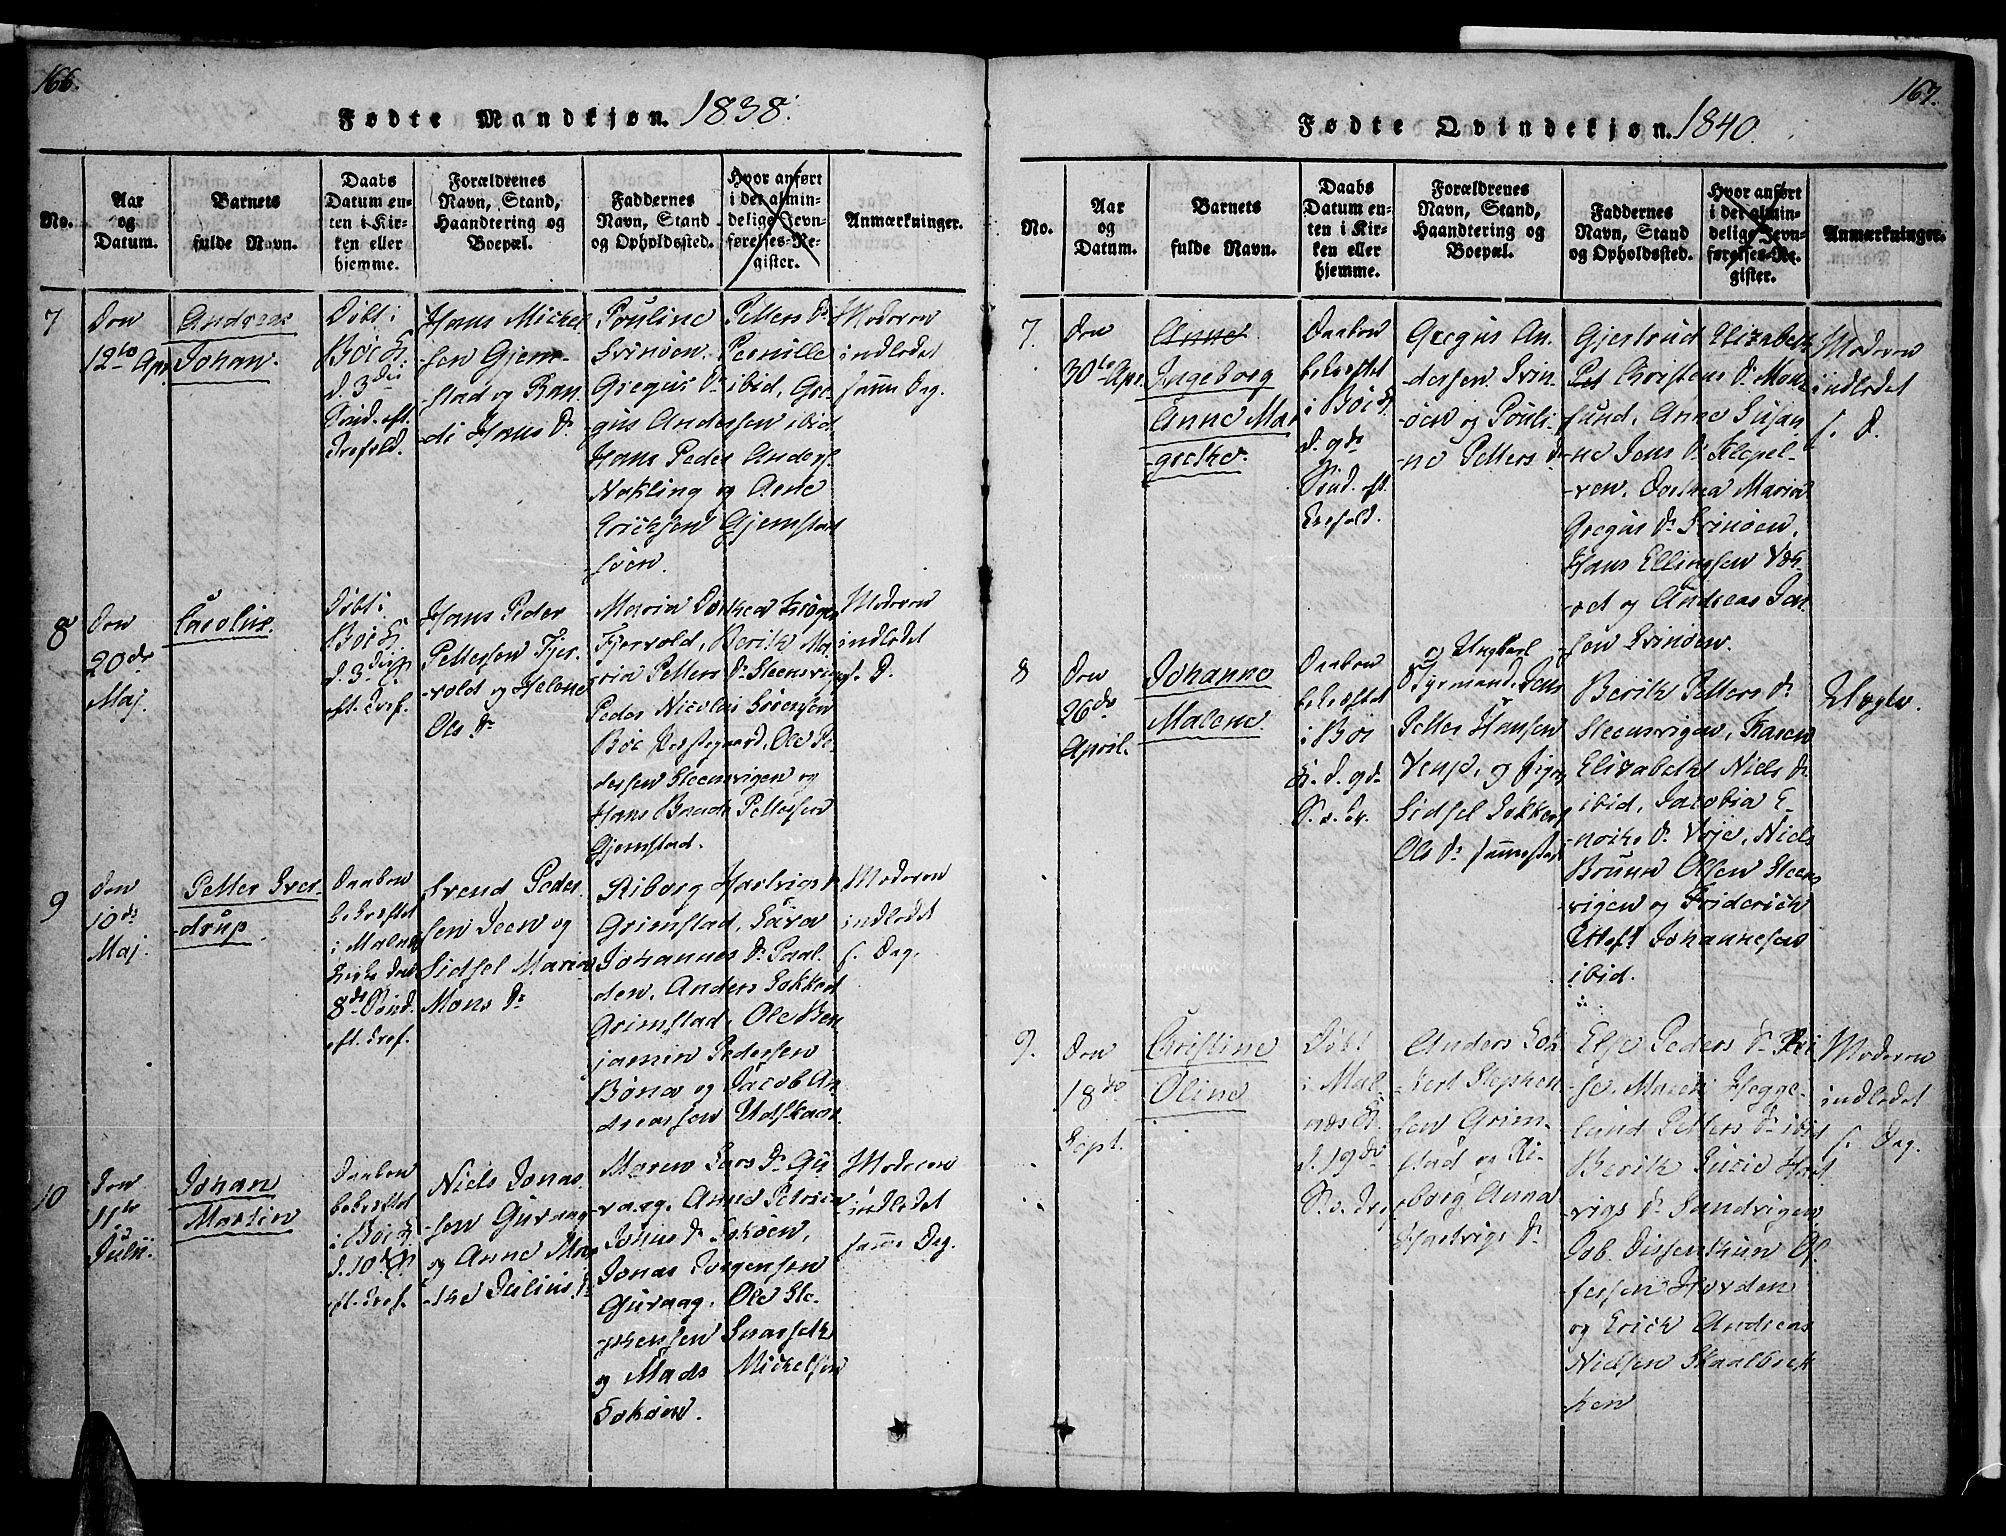 166.
Fødte Mandkjøn. 1838.
No.
Aar
og
Datum.
Barnets
fulde Navn.
Daabs
Datum en-
ten i Kir-
ken eller
hjemme.
Forældrenes
Navn, Stand,
Haandtering og
Boepæl.
Faddernes
Navn, Stand
og Opholdssted.
Hvor anført
i det almin-
delige Jevn-
førelses-Re-
gister.
Anmærkninger.
7
Den
12te Apr.
Andreas
Johan.
Døbt i
Bøe K.
d. 3die
Sønd. eft.
Trefold.
Hans Michel
sen Gjem-
stad og Ran-
di Hans Dr
Pouline Petters Dr
Svinøen. Pernille
Gregus Dr ibid, Gre-
gus Andersen ibid
Hans Peder Anders.
Nykling og Arne
Erichsen Gjemstad
søen.
Moderen
indledet
samme Dag.
8
Den
20de
Maj.
Caroline.
Døbt i
Bøe K.
d. 3die
eft. Tref.
Hans Peder
Pettersen Fjer-
vold og Helene
Ols Dr
Maria Dorthea
Fjervold, Berith Ma-
ria Petters Dr Steensvigen
Peder Nicolai Sørensen
Bøe Præstegaard, Ole Pe-
dersen Steensvigen og
Hans Brecht Pettersen
Gjemstad.
Moderen
indledet
s. D.
9
Den
10de
Maj.
Petter Sver-
drup
Daaben
bekræftet
i Malnes
Kirke den
8de Sønd.
eft. Tref.
Svend Peder
sen Teen og
Sidsel Maria
Mons Dr
Riborg Hartvigs Dr
Grimstad, Sara
Johannes Dr Paal-
den. Anders Sokkert
Grimstad, Ole Ben-
jamin Pedersen
Bønæ og Jacob An-
dreassen Udskaar.
Moderen
indledet
s. Dag.
10
Den
11te
Julii.
Johan
Martin
Daaben
bekræftet
i Bøe K.
d. 10de
eft. Tref.
Niels Jonas
sen Guvaag
og Anne Mar
the Julius Dr
Maren Lars Dr Gu
vaag, Anne Petrine
Johns Dr Sokøen,
Jonas Jørgensen
Guvaag. Ole Ste-
phensen Snarseth
og Mads Michelsen
Sokøen.
Moderen
indledet
samme Dag.
167.
Fødte Qvindekjøn. 1840.
No.
Aar
og
Datum.
Barnets
fulde Navn.
Daabs
Datum en-
ten i Kir-
ken eller
hjemme.
Forældrenes
Navn, Stand,
Haandtering og
Boepæl.
Faddernes
Navn, Stand
og Opholdssted.
Hvor anført
i det almin-
delige Jevn-
førelses-Re-
gister.
Anmærkninger.
7.
Den
30te Apr.
Anne
Ingeborg
Anne Mar
grethe.
Daaben
bekræftet
i Bøe K.
d. 9de
Sønd. eft.
Trefold.
Gregus An-
dersen Svin-
øen og Pouli-
ne Petters Dr
Gjertrud Elizabeth
Pet Christens Dr
sund, Anne Susan
ne Jens Dr Klepel-
ven, Dorthea Maria
Gregus Dr Svinøen,
Hans Ellingsen
og Andreas Jon
sen Svinøen.
Moderen
indledet
s. D.
8
Den
26de
April.
Johanne
Malene.
Daaben
bekræftet
i Bøe
K. d. 9de
S. e. Tr.
Ungkarl
Styrmand Jens
Petter Hansen
Vensø, og Pigen
Sidsel Sokkert
Ols Dr sammested
Berith Petters Dr
Steensvigen, Karen
Elizabeth Niels Dr
ibid, Jacobia E-
nochs Dr Voje, Niels
Bruun Olsen Steens
vigen og Friderich
Johannesen
ibid.
Uægte.
9.
Den
18de
Sept.
Christine
Oline
Døbt
i Mal-
næs K.
d. 19de
S. e. Tref.
Anders Sok
kert Stephen-
sen Grim-
stad og Ri-
borg Anna
Hartvigs Dr
Else Peders Dr
Maren Hegge-
lund Petters Dr ibid
Berith Lucie Hart
vigs Dr Sandvigen
Job Dissenthun Ol-
Hovden
og Erich Andreas
Nielsen Skaalbræk-
ken
Moderen
indledet
s. Dag.